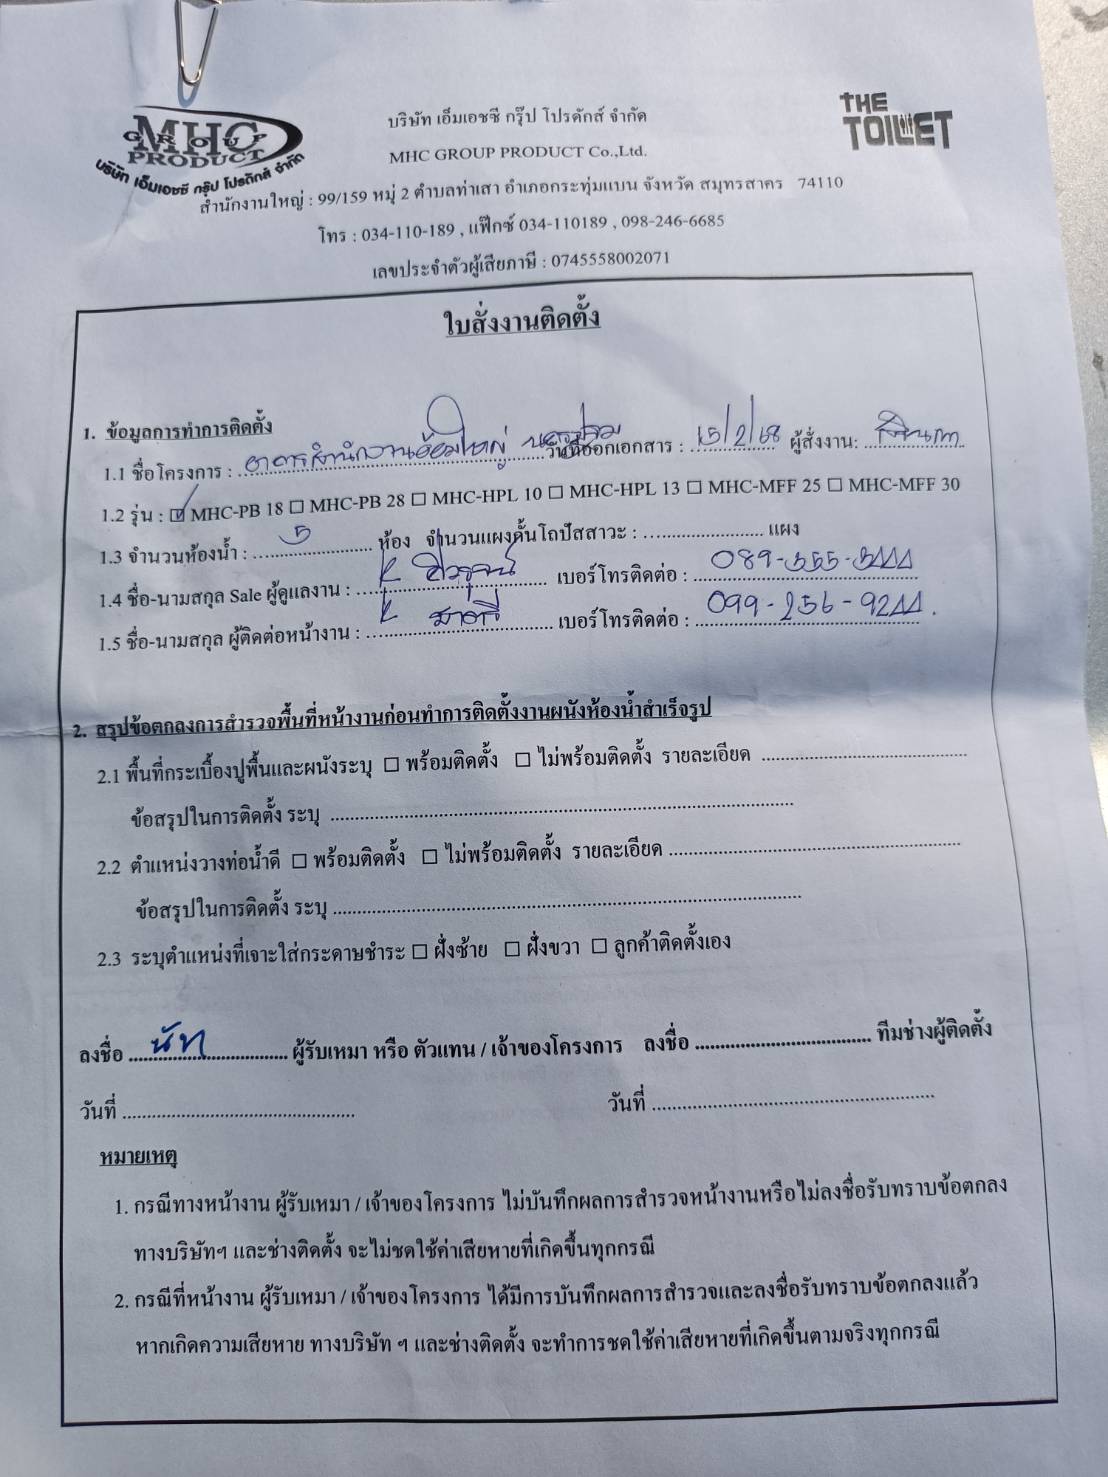 MHC
GROUP
PRODUCT
บริษัท เอ็มเอชซี กรุ๊ป โปรดักส์ จำกัด
THE
TOILET
บริษัท เอ็มเอชซี กรุ๊ป โปรดักส์ จำกัด
MHC GROUP PRODUCT Co.,Ltd.
สำนักงานใหญ่ : 99/159 หมู่ 2 ตำบลท่าเสา อำเภอกระทุ่มแบน จังหวัด สมุทรสาคร 74110
โทร : 034-110-189 , แฟ๊กซ์ 034-110189 , 098-246-6685
เลขประจำตัวผู้เสียภาษี : 0745558002071
ใบสั่งงานติดตั้ง
1. ข้อมูลการทำการติดตั้ง
1.1 ชื่อโครงการ : อาคารสำนักงานอ้อมใหญ่ นครปฐม วันที่ออกเอกสาร : 15/2/68 ผู้สั่งงาน:
1.2 รุ่น : ☑ MHC-PB 18 ☐ MHC-PB 28 ☐ MHC-HPL 10 ☐ MHC-HPL 13 ☐ MHC-MFF 25 ☐ MHC-MFF 30
1.3 จำนวนห้องน้ำ : 5 ห้อง จำนวนแผงกั้นโถปัสสาวะ : ........................ แผง
1.4 ชื่อ-นามสกุล Sale ผู้ดูแลงาน : K เบอร์โทรติดต่อ : 089-555-5444
1.5 ชื่อ-นามสกุล ผู้ติดต่อหน้างาน : K เบอร์โทรติดต่อ : 099-256-9244.
2. สรุปข้อตกลงการสำรวจพื้นที่หน้างานก่อนทำการติดตั้งงานผนังห้องน้ำสำเร็จรูป
2.1 พื้นที่กระเบื้องปูพื้นและผนังระบุ ☐ พร้อมติดตั้ง ☐ ไม่พร้อมติดตั้ง รายละเอียด ........................
ข้อสรุปในการติดตั้ง ระบุ ........................
2.2 ตำแหน่งวางท่อน้ำดี ☐ พร้อมติดตั้ง ☐ ไม่พร้อมติดตั้ง รายละเอียด ........................
ข้อสรุปในการติดตั้ง ระบุ ........................
2.3 ระบุตำแหน่งที่เจาะใส่กระดาษชำระ ☐ ฝั่งซ้าย ☐ ฝั่งขวา ☐ ลูกค้าติดตั้งเอง
ลงชื่อ นัท ผู้รับเหมา หรือ ตัวแทน / เจ้าของโครงการ ลงชื่อ ........................ ทีมช่างผู้ติดตั้ง
วันที่ ........................ วันที่ ........................
หมายเหตุ
1. กรณีทางหน้างาน ผู้รับเหมา / เจ้าของโครงการ ไม่บันทึกผลการสำรวจหน้างานหรือไม่ลงชื่อรับทราบข้อตกลง
ทางบริษัทฯ และช่างติดตั้ง จะไม่ชดใช้ค่าเสียหายที่เกิดขึ้นทุกกรณี
2. กรณีที่หน้างาน ผู้รับเหมา / เจ้าของโครงการ ได้มีการบันทึกผลการสำรวจและลงชื่อรับทราบข้อตกลงแล้ว
หากเกิดความเสียหาย ทางบริษัท ฯ และช่างติดตั้ง จะทำการชดใช้ค่าเสียหายที่เกิดขึ้นตามจริงทุกกรณี